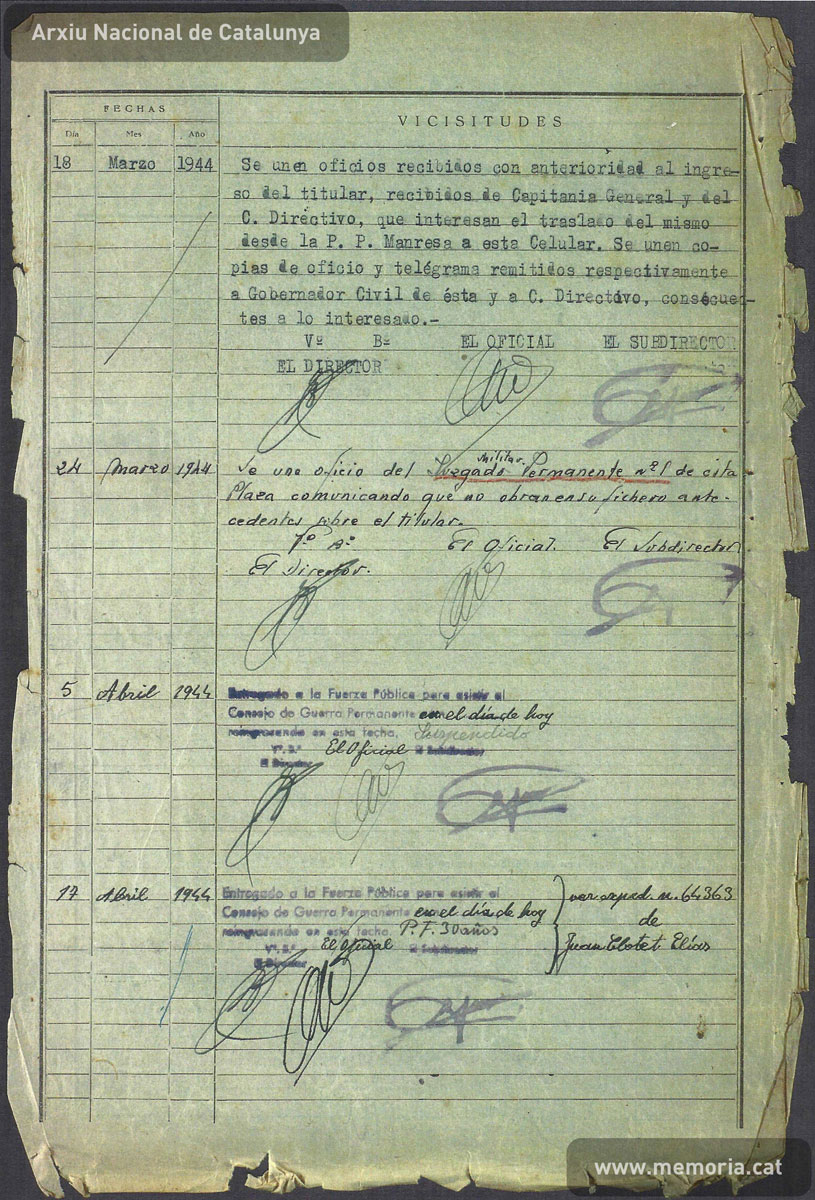 Arxiu Nacional de Catalunya
FECHAS
VICISITUDES
Día Mes Año
18 Marzo 1944 Se unen oficios recibidos con anterioridad al ingre-
so del titular, recibidos de Capitania General y del
C. Directivo, que interesan el traslado del mismo
desde la P. P. Manresa a esta Celular. Se unen co-
pias de oficio y telégrama remitidos respectivamente
a Gobernador Civil de ésta y a C. Directivo, consecuen-
tes a lo interesado.-
Vº Bº EL OFICIAL EL SUBDIRECTOR
EL DIRECTOR
24 Marzo 1944 Se une oficio del Juzgado Militar Permanente nº1 de esta
Plaza comunicando que no obran en su fichero ante-
cedentes sobre el titular.
Vº Bº El Oficial. El Subdirector
El Director.
5 Abril 1944 Entregado a la Fuerza Pública para asistir al
Consejo de Guerra Permanente en el día de hoy
reingresando en esta fecha. Suspendido
Vº. Bº El Oficial El Subdirector
El Director
17 Abril 1944 Entregado a la Fuerza Pública para asistir al
Consejo de Guerra Permanente en el día de hoy
reingresando en esta fecha. P. F. 30 años
Vº. Bº El Oficial El Subdirector
El Director
ver exped. n. 64363
de
Juan Clotet Elías
www.memoria.cat